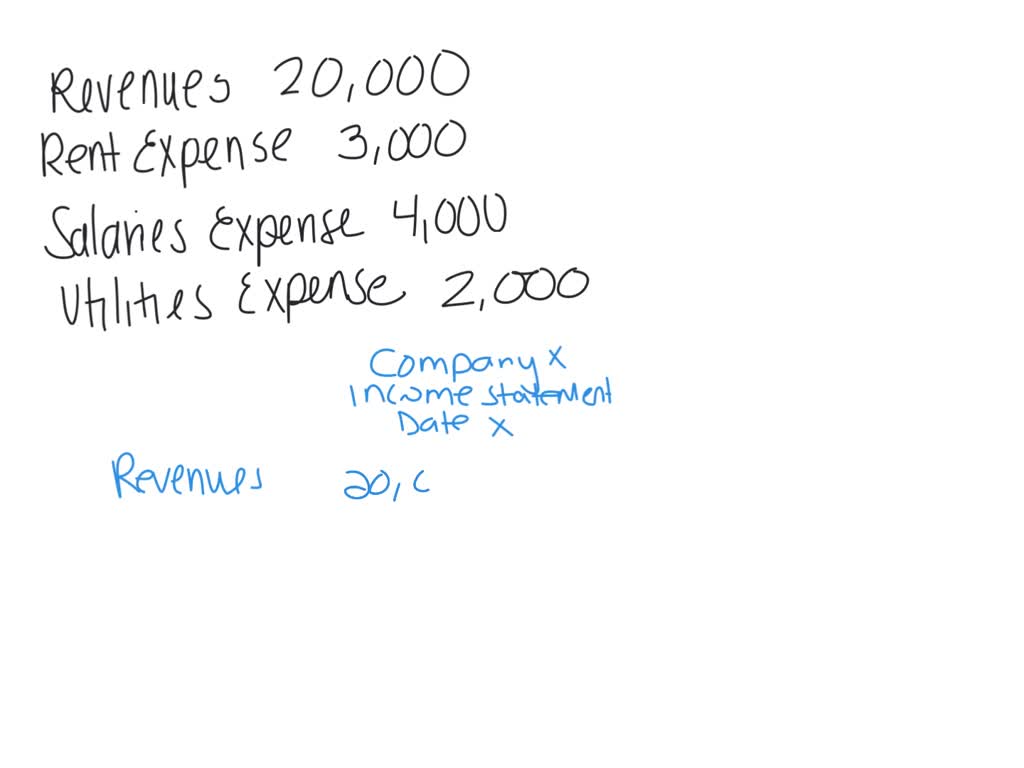 Revenues 20,000
Rent Expense 3,000
Salaries Expense 4,000
Utilities Expense 2,000
Company x
Income statement
Date x
Revenues 20, c